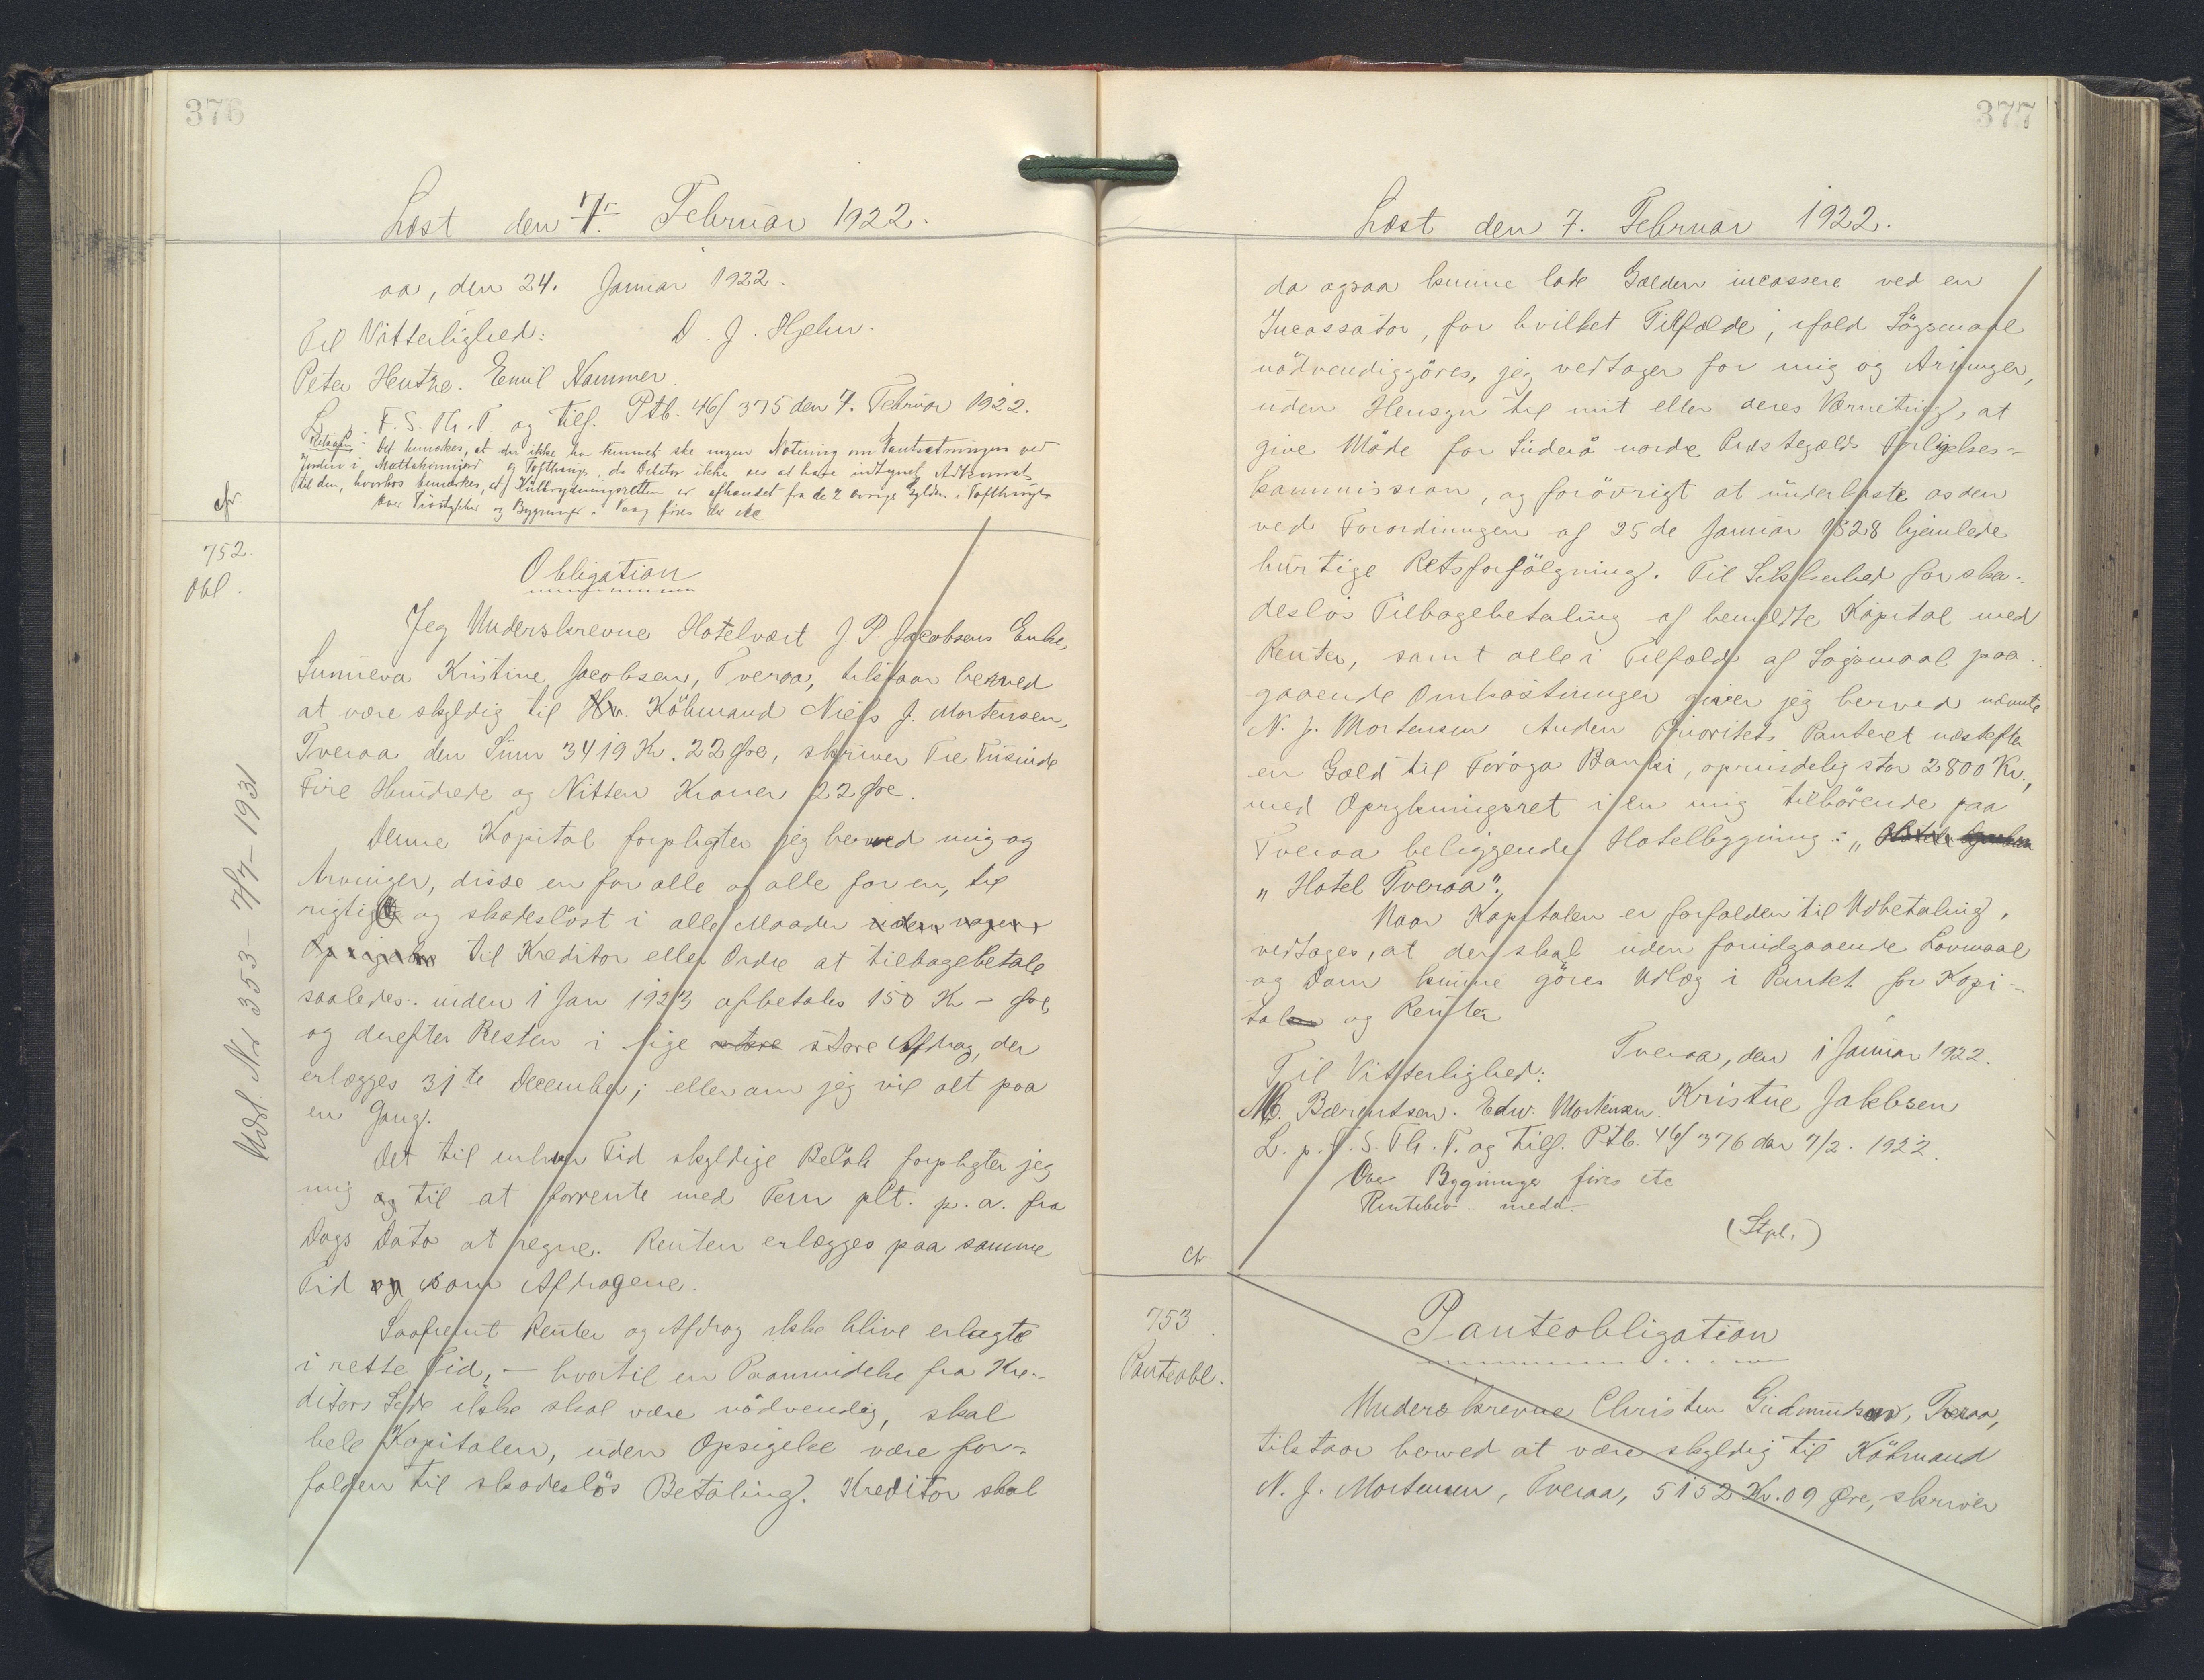 376
Læst den 7. Februar 1922.
aa, den 24. Januar 1922.
Til Vitterlighed: D. J. Hjelm.
Peter Hentze. Emil Hammer
L. p. F. S. Th. T. og tilf. Ptb. 46/375 den 7. Februar 1922.
Retsanm: Det bemærkes, at der ikke har kunnet ske nogen Notering om Pantsætningen ved
Jorden i og Tofthauge, da Debitor ikke ses at have indtegnet Adkomst
til den, hvorhos bemærkes, at er afhændet fra de 2 øvrige Gylden i Tofthauge
Over og Bygninger i Vaag føres der etc
cfr.
752.
Obl.
Obligation
Jeg Underskrevne Hotelvært J. P. Jacobsens Enke,
Sunneva Kristine Jacobsen, Tveraa, tilstaar herved
at være skyldig til Hr. Köbmand Niels J. Mortensen,
Tveraa den Sum 3419 Kr. 22 Øre, skriver Tre Tusinde
Fire Hundrede og Nitten Kroner 22 Øre.
Denne Kapital forpligter jeg herved mig og
Arvinger, disse en for alle og alle for en, til
rigtig og skadeslöst i alle Maader uden nogen
Opsigelse til Kreditor eller Ordre at tilbagebetale
saaledes: inden 1 Jan 1923 afbetales 150 Kr - Øre,
og derefter Resten i lige store store Afdrag, der
erlægges 31te December; eller om jeg vil alt paa
en Gang.
Det til enhver Tid skyldige Belöb forpligter jeg
mig og til at forrente med Fem pCt. p. a. fra
Dags Dato at regne. Renten erlægges paa samme
Tid og som Afdragene.
Saafremt Renter og Afdrag ikke blive erlagte
i rette Tid, - hvortil en Paamindelse fra Kre-
ditors Side ikke skal være nödvendig, skal
hele Kapitalen, uden Opsigelse være for-
falden til skadeslös Betaling. Kreditor skal
Udsl. No 353 - 7/7 - 1931
377
Læst den 7. Februar 1922.
da ogsaa kunne lade Gælden incassere ved en
Incassator, for hvilket Tilfælde, ifald Sögsmaal
nödvendiggöres, jeg vedtager for mig og Arvinger,
uden Hensyn til mit eller deres Værneting, at
give Möde for Suderö nordre Præstegælds Forligelses-
kommission, og forövrigt at underkaste os den
ved Forordningen af 25de Januar 1828 hjemlede
hurtige Retsforfölgning. Til Sikkerhed for ska-
deslös Tilbagebetaling af bemeldte Kapital med
Renter, samt alle i Tilfælde af Sögsmaal paa-
gaaende Omkostninger giver jeg herved nævnte
N. J. Mortensen Anden Prioritets Panteret næstefter
en Gæld til Föroya Banki, oprindelig stor 2800 Kr.,
med Oprykningsret i en mig tilhörende paa
Tveraa beliggende Hotelbygning: „
„Hotel Tveraa“.
Naar Kapitalen er forfalden til Udbetaling,
vedtages, at der skal uden foridgaaende Lovmaal
og Dom kunne göres Udlæg i Pantet for Kapi-
talen og Renter
Tveraa, den 1 Januar 1922.
Til Vitterlighed:
M. Bærentsen. Edw. Mortensen. Kristine Jakobsen
L. p. F. S. Th. T. og tilf. Ptb. 46/376 den 7/2. 1922.
Over Bygninger föres etc
Rentebev. medd.
(Stpl.)
cfr.
753.
Panteobl.
Panteobligation
Underskrevne Christen Gudmundsen, Tveraa,
tilstaar herved at være skyldig til Köbmand
N. J. Mortensen, Tveraa, 5152 Kr. 09 Øre, skriver